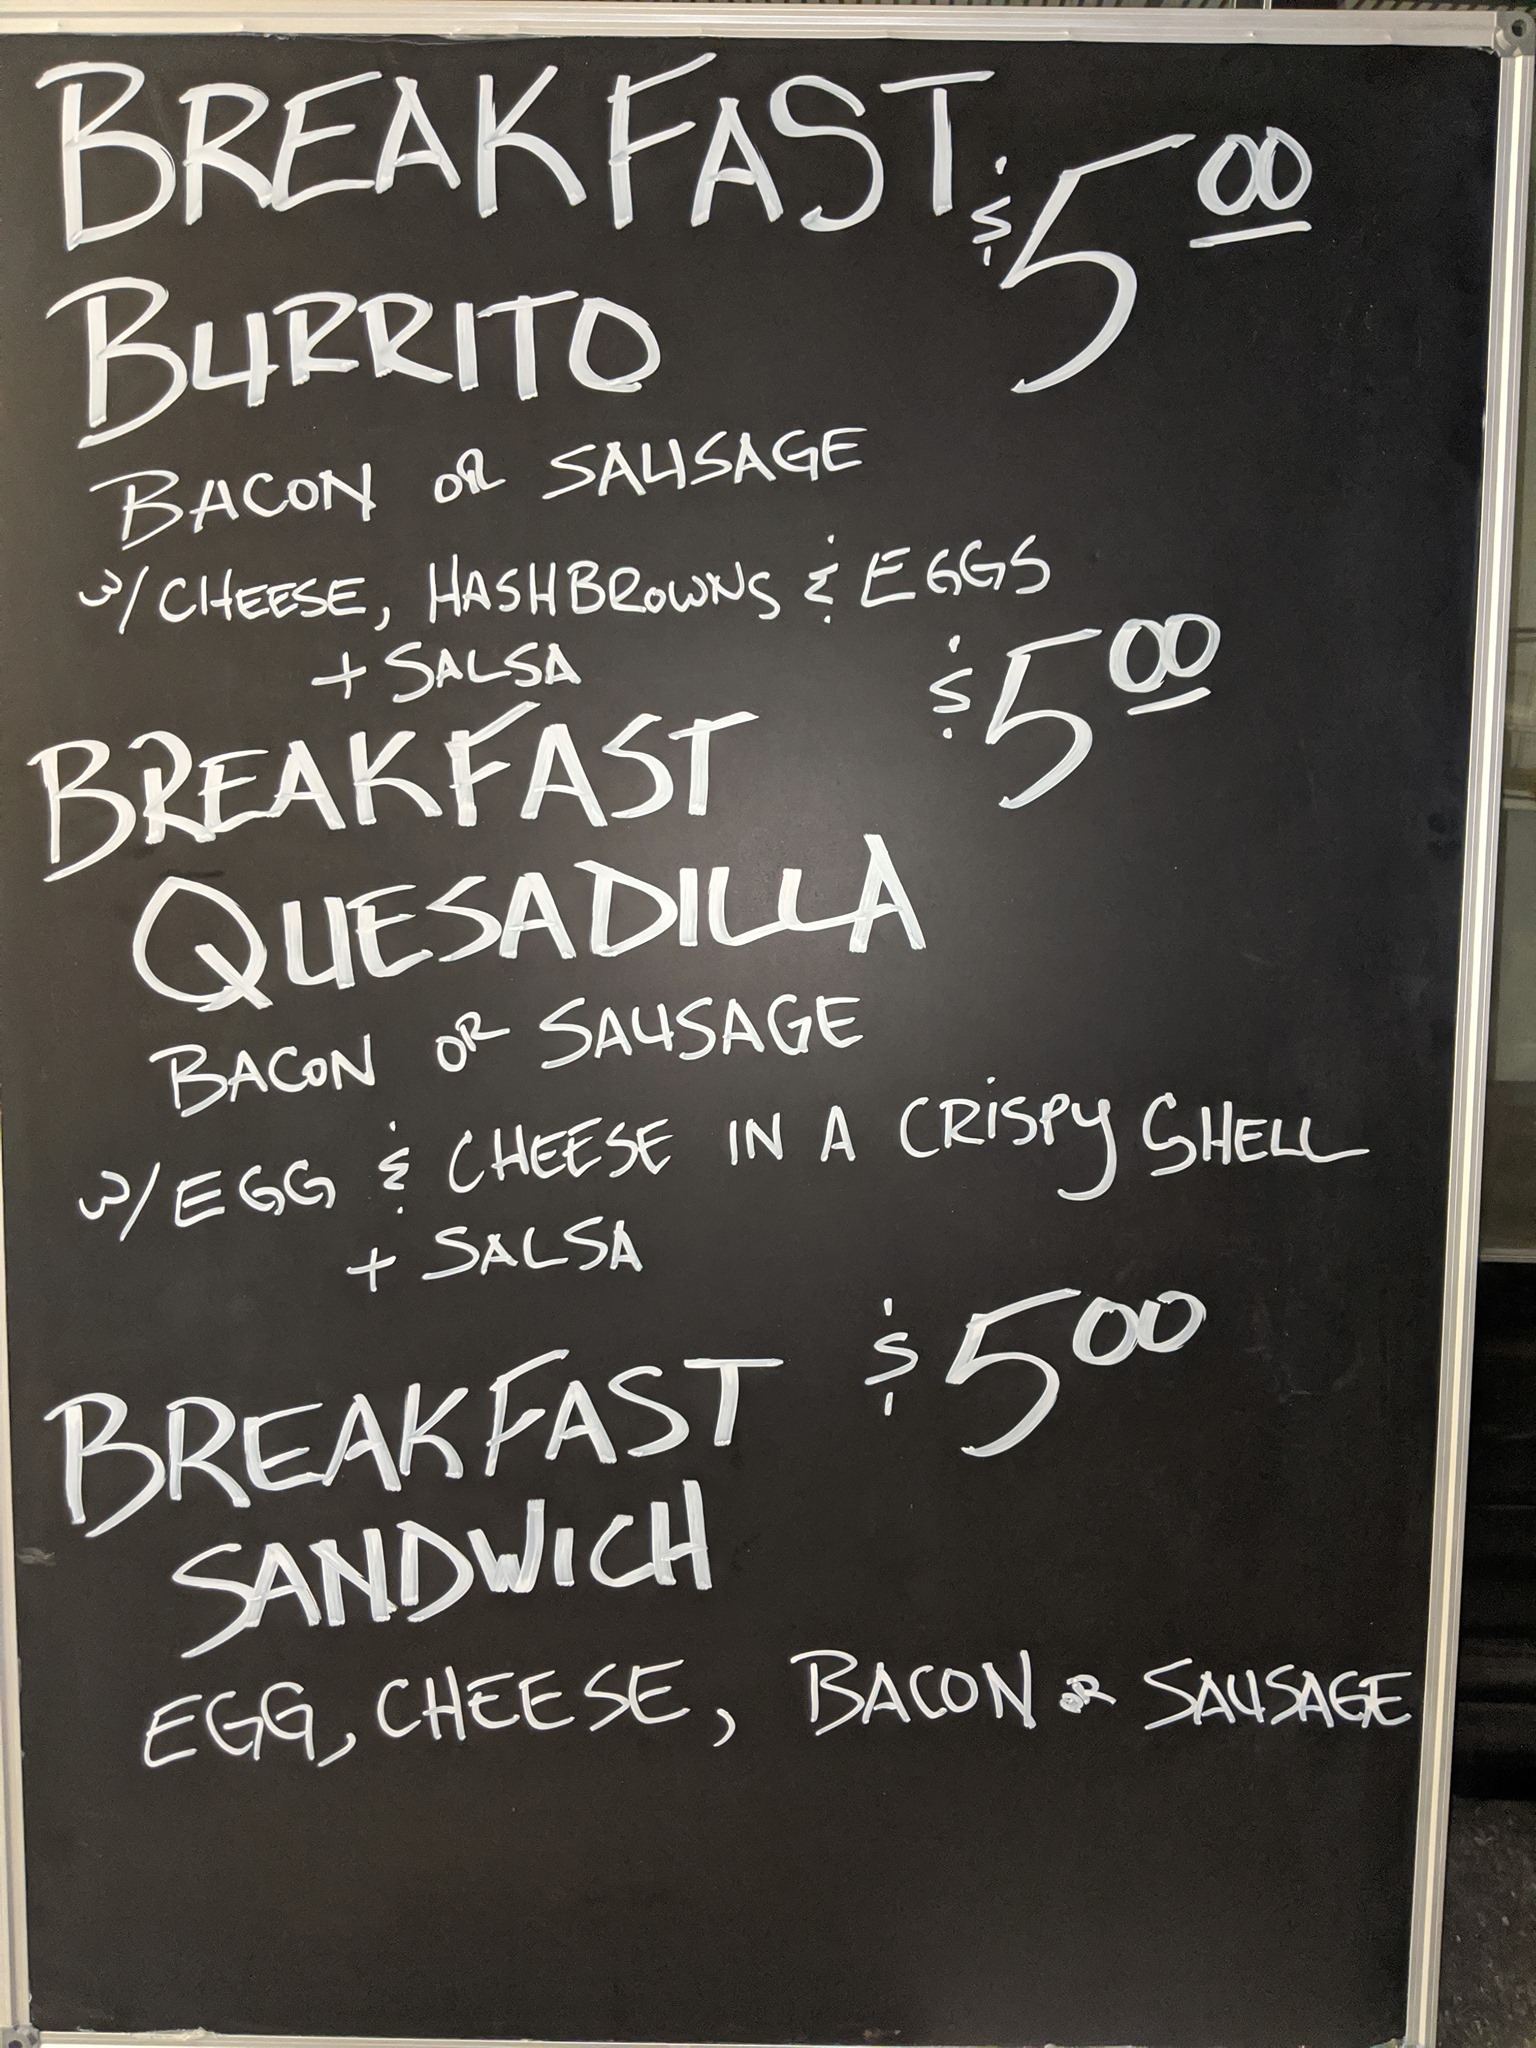 BREAKFAST $5.00
BURRITO
BACON OR SAUSAGE
W/ CHEESE, HASHBROWNS & EGGS
+ SALSA
BREAKFAST $5.00
QUESADILLA
BACON OR SAUSAGE
W/ EGG & CHEESE IN A CRISPY SHELL
+ SALSA
BREAKFAST $5.00
SANDWICH
EGG, CHEESE, BACON OR SAUSAGE